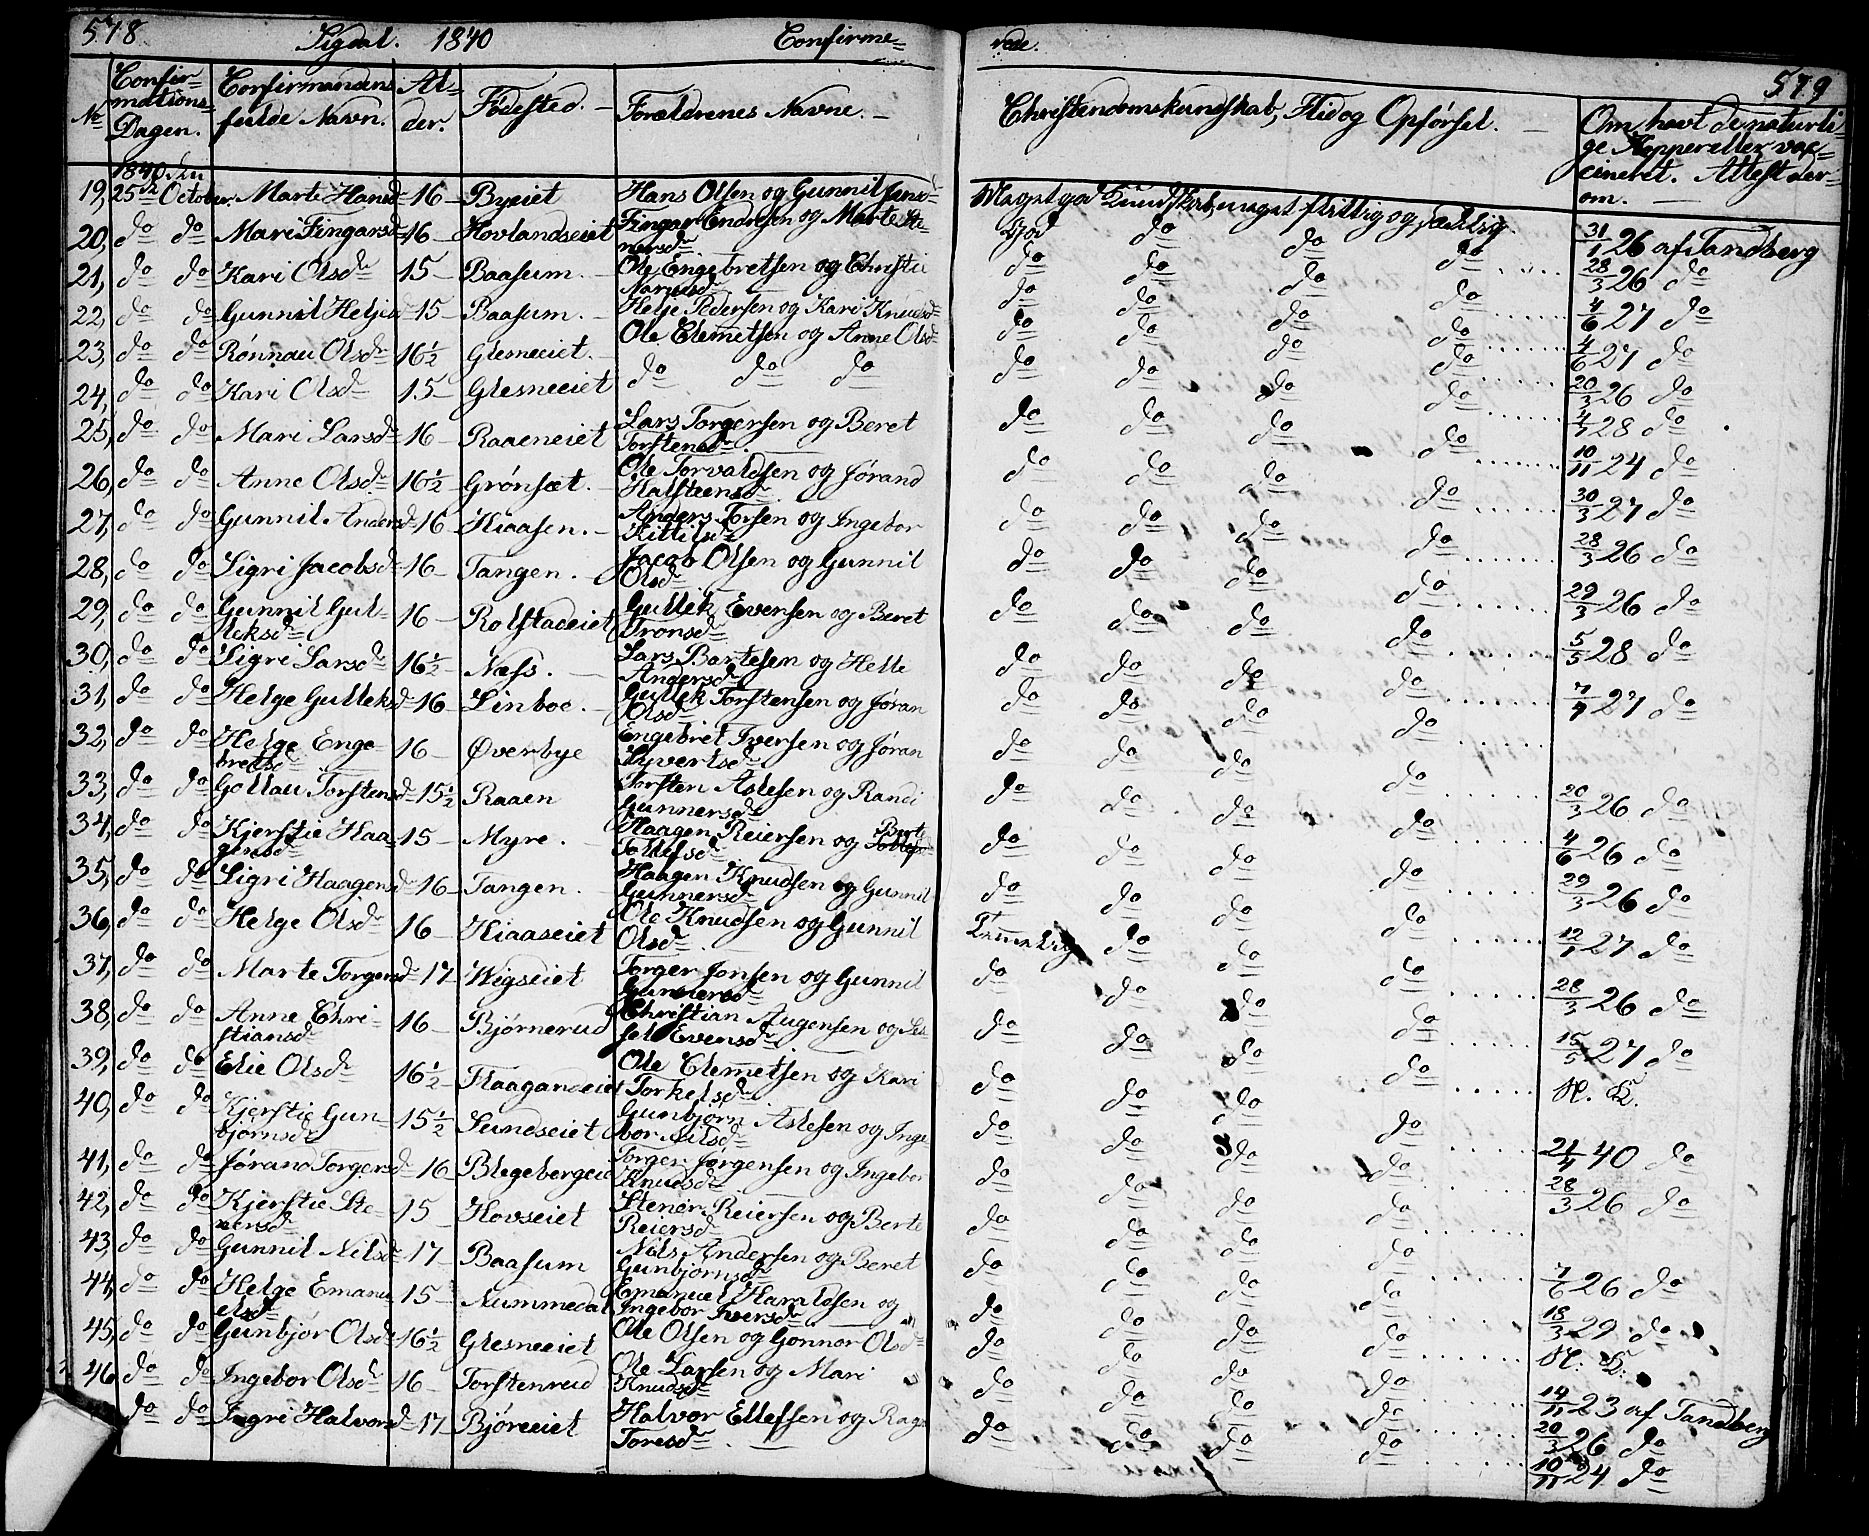 578 Sigdal. 1840 Confirme=
No Confir=mations=Dagen. Confirmandens fulde Navn. Al=der. Fødested. Forældrenes Navne.
1840 den
19, 25de October. Marte Hansd 16 Byeiet Hans Olsen og Gunnil Jensd
20, do do Mari Fingarsd 16 Hovlandseiet Fingar Endresen og Marte Ste=
nersd
21, do do Kari Olsd 15 Baasum. Ole Engebretsen og Christie
22, do do Gunnil Heljesd 15 Baasum. Helje Pedersen og Kari Knudsd
23, do do Rønnau Olsd 16½ Glesneeiet. Ole Clemetsen og Anne Olsd
24, do do Kari Olsd 15 Glesneeiet do do do
25, do do Mari Larsd 16 Raaeneiet Lars Torgersen og Beret
Torstensd.
26, do do Anne Olsd 16½ Grønsæt. Ole Torvaldsen og Jørand
Halsteensd
27, do do Gunnil Andersd 16 Kiaasen. Anders Torsen og Ingebor
Kittilsd
28, do do Sigri Jacobsd 16 Tangen. Jacob Olsen og Gunnil
Olsd
29, do do Gunnil Gul= 16 Rolfstadeiet Gullek Evensen og Beret
leksd Tronsd
30, do do Sigri Larsd 16½ Næss. Lars Bartesen og Helle
Andersd
31, do do Helge Gulleksd 16 Linboe. Gullek Torstensen og Jøran
Olsd
32, do do Helge Enge= 16 Øverbye Engebret Iversen og Jøran
bretsd Syvertsd
33, do do Gollau Torstensd 15½ Raaen Torsten Aslesen og Randi
Gunnersd
34, do do Kjerstie Haa 15 Myre. Haagen Reiersen og Berte
gensd Tollefsd
35, do do Sigri Haagensd 16 Tangen. Haagen Knudsen og Gunnil
Gunnersd
36, do do Helge Olsd 16 Kiaaseiet Ole Knudsen og Gunnil
Olsd.
37, do do Marte Torgersd 17 Wigseiet Torger Jonsen og Gunnil
Gunnersd
38, do do Anne Chri= 16 Bjørnerud Christian Augensen og Sis
stiansd sel Evensd
39, do do Elie Olsd 16½ Flaagandeiet Ole Clemetsen og Kari
Torkelsd
40, do do Kjerstie Gun= 15½ Sundseiet Gunbjørn Aslesen og Inge
bjørnsd bor Nilsd
41, do do Jørand Torgersd 16 Blegebergeiet Torger Jørgensen og Ingebor
Knudsd
42, do do Kjerstie Ste= 15 Hovseiet Stener Reiersen og Berte
nersd Reiersd
43, do do Gunnil Nilsd 17 Baasum Nils Andersen og Beret
Gunbjørnsd
44, do do Helge Emanu 15 Nummedal Emanuel Haraldsen og
elsd Ingebor Iversd
45, do do Gunbjør Olsd 16½ Glesneeiet Ole Olsen og Gonnor Olsd
46 do do Ingebor Olsd 16 Torstenrud Ole Larsen og Mari
Knudsd
do do Ingri Halvorsd 17 Bjøreeiet Halvor Ellefsen og Rag
Toresd.
rede. 579
Christendomskundskab, Flid og Opførsel. Om havt de naturli=
ge Kopper eller vac=
cineret. Attest der=
om.
Meget god Kundskab, meget flittig og sædelig. 31/1 26 af Tandberg
God do do do 28/3 26 do
do do do do 4/6 27 do
do do do do 4/6 27 do
do do do do 20/3 26 do
do do do do 4/1 28 do
do do do do 10/11 24 do
do do do do 30/3 27 do
do do do do 28/3 26 do
do do do do 29/3 26 do
do do do do 5/5 28 do
do do do do 7/7 27 do
do do do do
do do do do 20/3 26 do
do do do do 4/6 26 do
do do do do 29/3 26 do
Temmelig do do do 12/1 27 do
do do do do 28/3 26 do
do do do do 15/5 27 do
do do do do N. K.
do do do do 21/4 40 do
do do do do 28/3 26 do
do do do do
do do do do 7/6 26 do
do do do do 18/3 29 do
do do do do N. K.
do do do do 14/11 23 af Tandberg
do do do do 20/3 26 do
do do do do 10/11 24 do